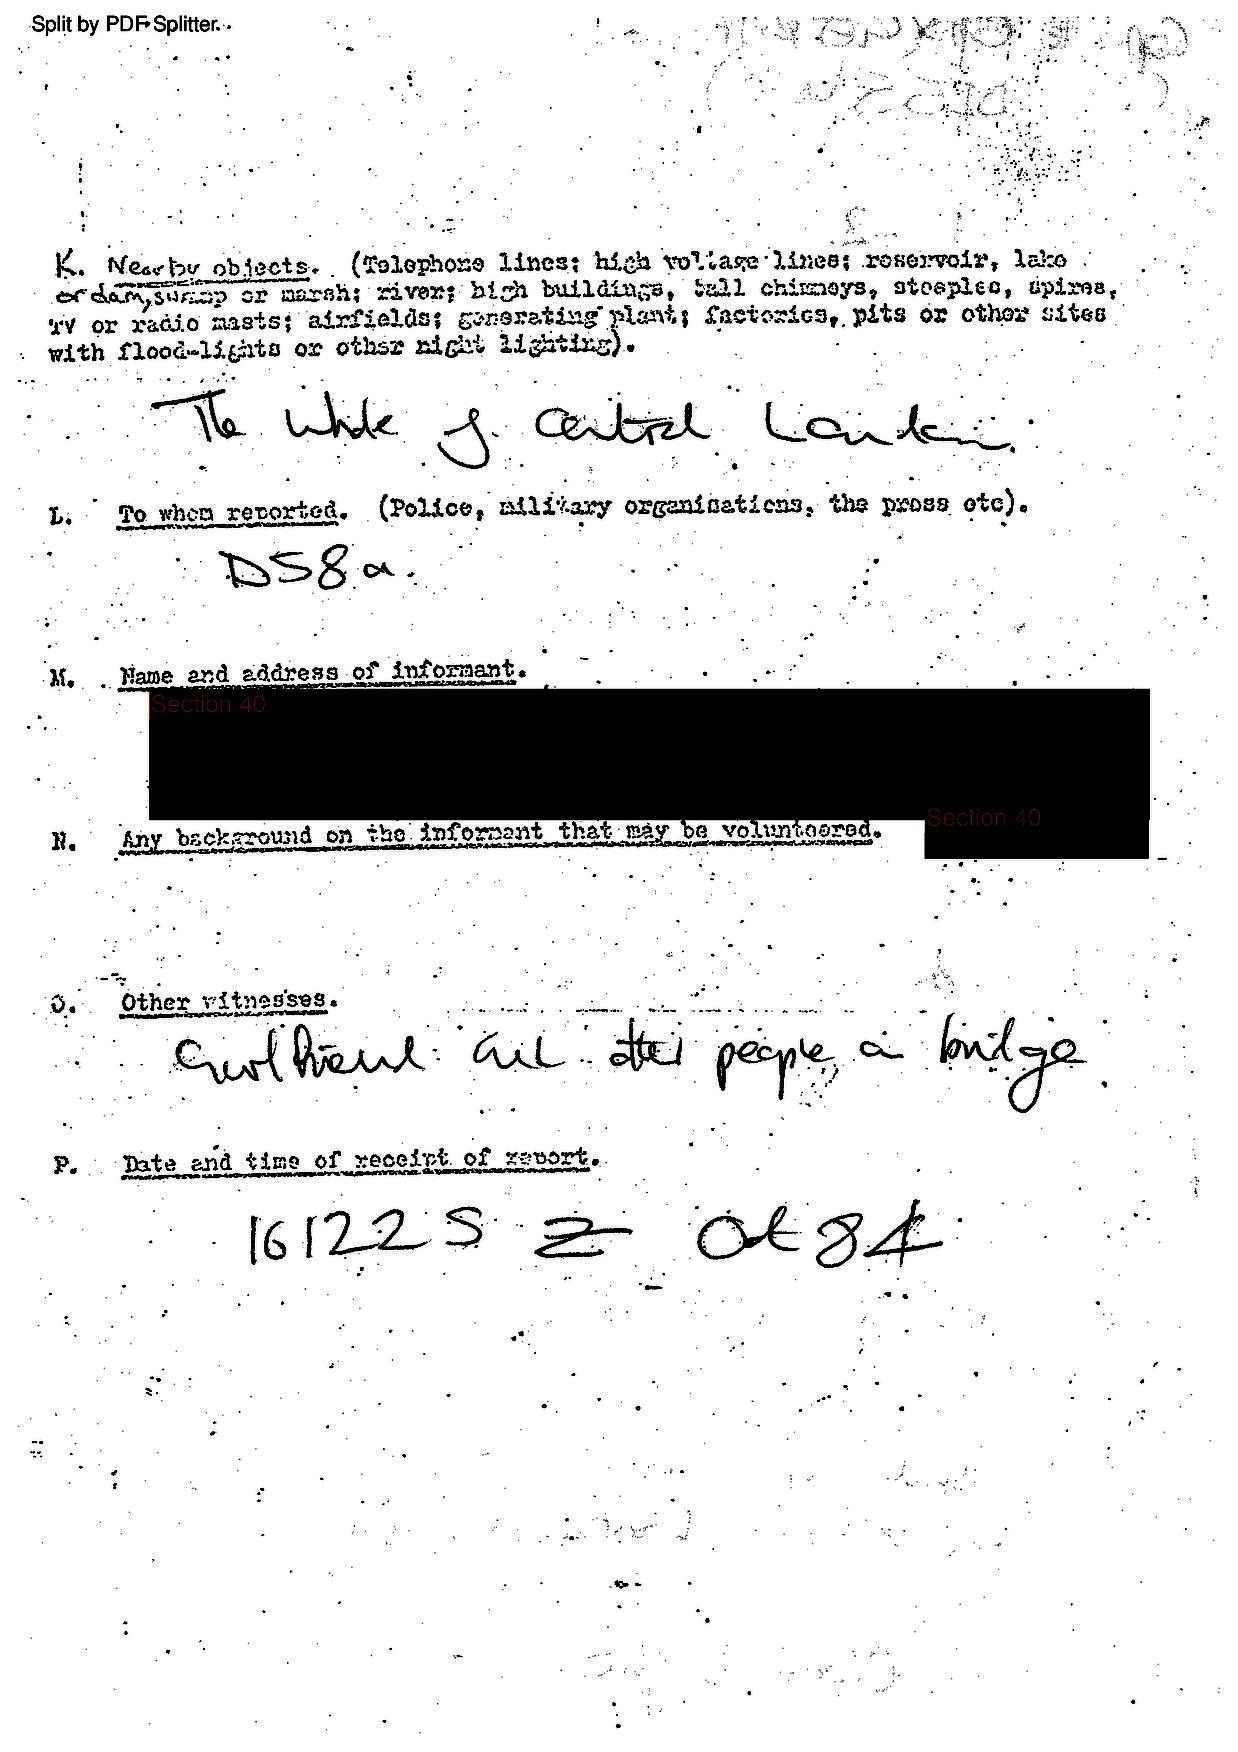 Split by PDF Splitter.
K. Nearby objects. (Telephone lines; high voltage lines; reservoir, lake
or dam, swamp or marsh; river; high buildings, tall chimneys, steeples, spires,
TV or radio masts; airfields; generating plant; factories, pits or other sites
with flood-lights or other night lighting).
The whole of Central London.
L. To whom reported. (Police, military organisations, the press etc).
DS8a.
M. Name and address of informant.
Section 40
Section 40
N. Any background on the informant that may be volunteered.
O. Other witnesses.
Girlfriend and other people on bridge
P. Date and time of receipt of report.
161225 Z Oct 84